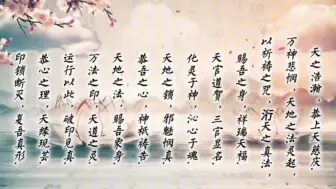 天之浩瀚，恭上天慈庆。
万神悲悯，天地之法灵起，
以祈祷之咒，泎天之真法，
赐吾之身，祥瑞天福，
天官道贺，三官显名，
化灵于神，沁心于魂，
天地之锁，邪魅悯真，
恭吾之心，神祇祷告，
天地之法，赐吾象身，
万法之印，天道之灵，
运行以此，破印见真，
恭心之理，天缘现芸，
印锁断灭，复吾真形，